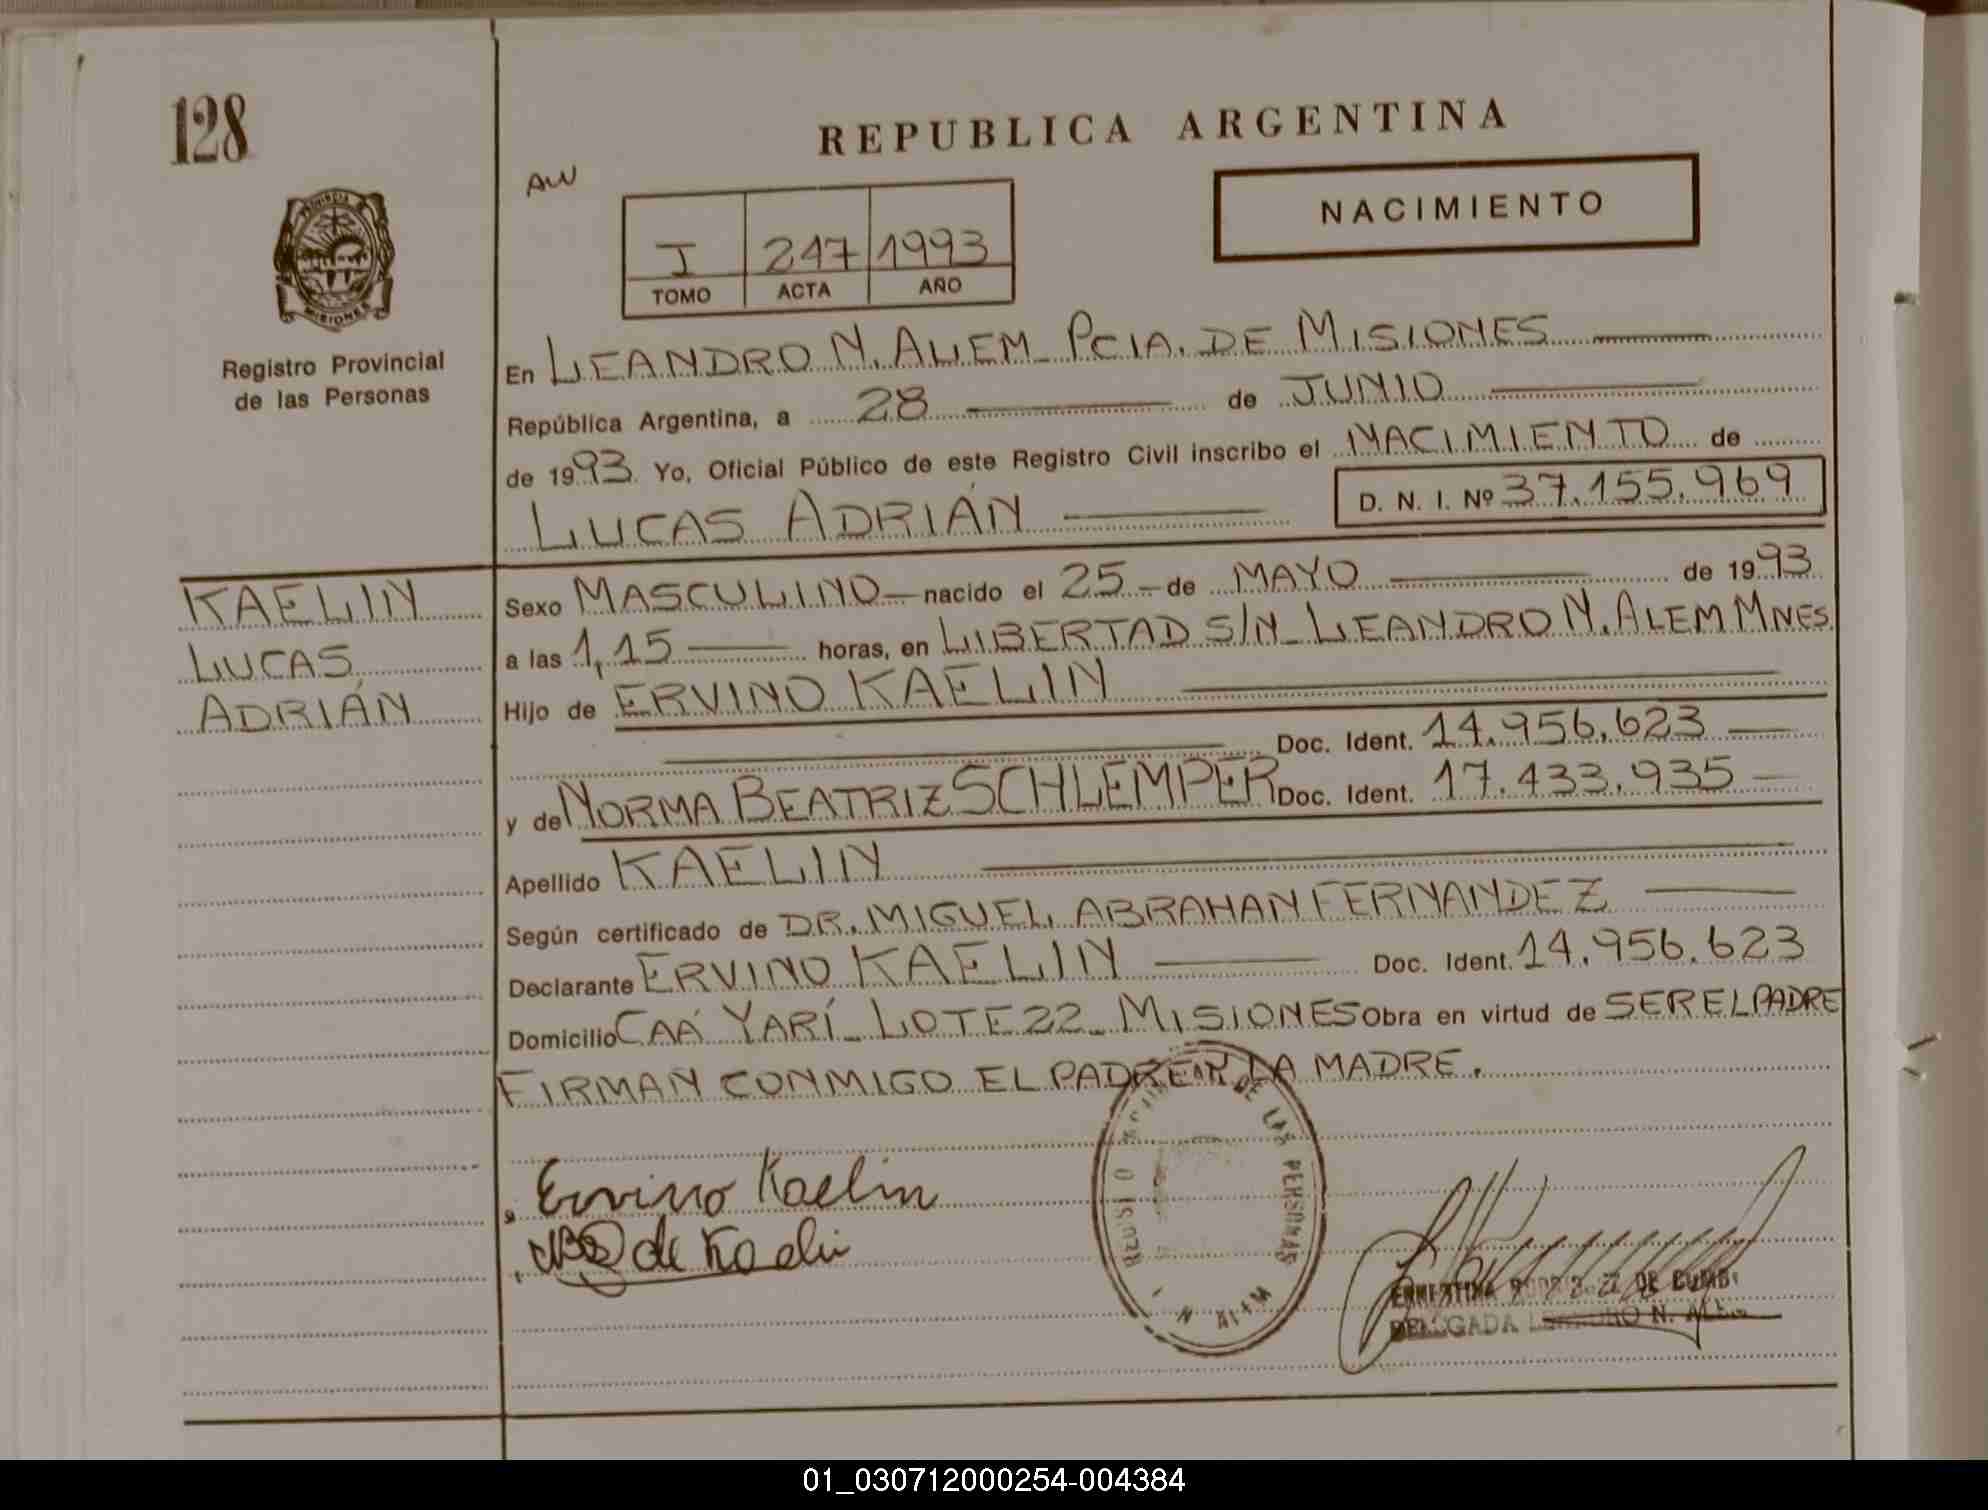 128
REPUBLICA ARGENTINA
AW
NACIMIENTO
I 247 1993
TOMO ACTA AÑO
PROVINCIA DE
MISIONES
Registro Provincial
de las Personas
En LEANDRO N. ALEM_ PCIA. DE MISIONES
República Argentina, a 28 de JUNIO
de 1993 Yo, Oficial Público de este Registro Civil inscribo el NACIMIENTO de
LUCAS ADRIÁN D. N. I. Nº 37.155.969
KAELIN
LUCAS
ADRIÁN
Sexo MASCULINO nacido el 25 de MAYO de 1993
a las 1,15 horas, en LIBERTAD S/N_ LEANDRO N. ALEM MNES
Hijo de ERVINO KAELIN
Doc. Ident. 14.956.623
y de NORMA BEATRIZ SCHLEMPER Doc. Ident. 17.433.935
Apellido KAELIN
Según certificado de DR. MIGUEL ABRAHAN FERNANDEZ
Declarante ERVINO KAELIN Doc. Ident. 14.956.623
Domicilio CAÁ YARÍ_ LOTE 22_ MISIONES Obra en virtud de SER EL PADRE
FIRMAN CONMIGO EL PADRE Y LA MADRE.
DE LAS PERSONAS
N. ALEM
Ervino Kaelin
de Kaelin
ERNESTINA DE
DELEGADA LEANDRO N. ALEM
01_030712000254-004384